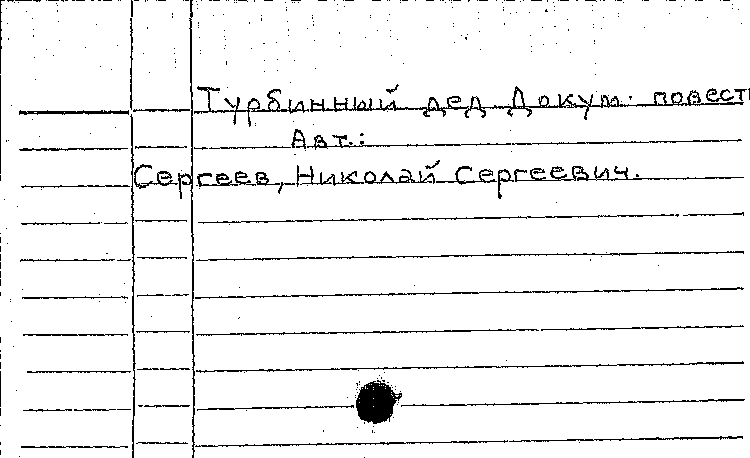 Турбинный дед Докум. повесть
Авт.:
Сергеев, Николай Сергеевич.